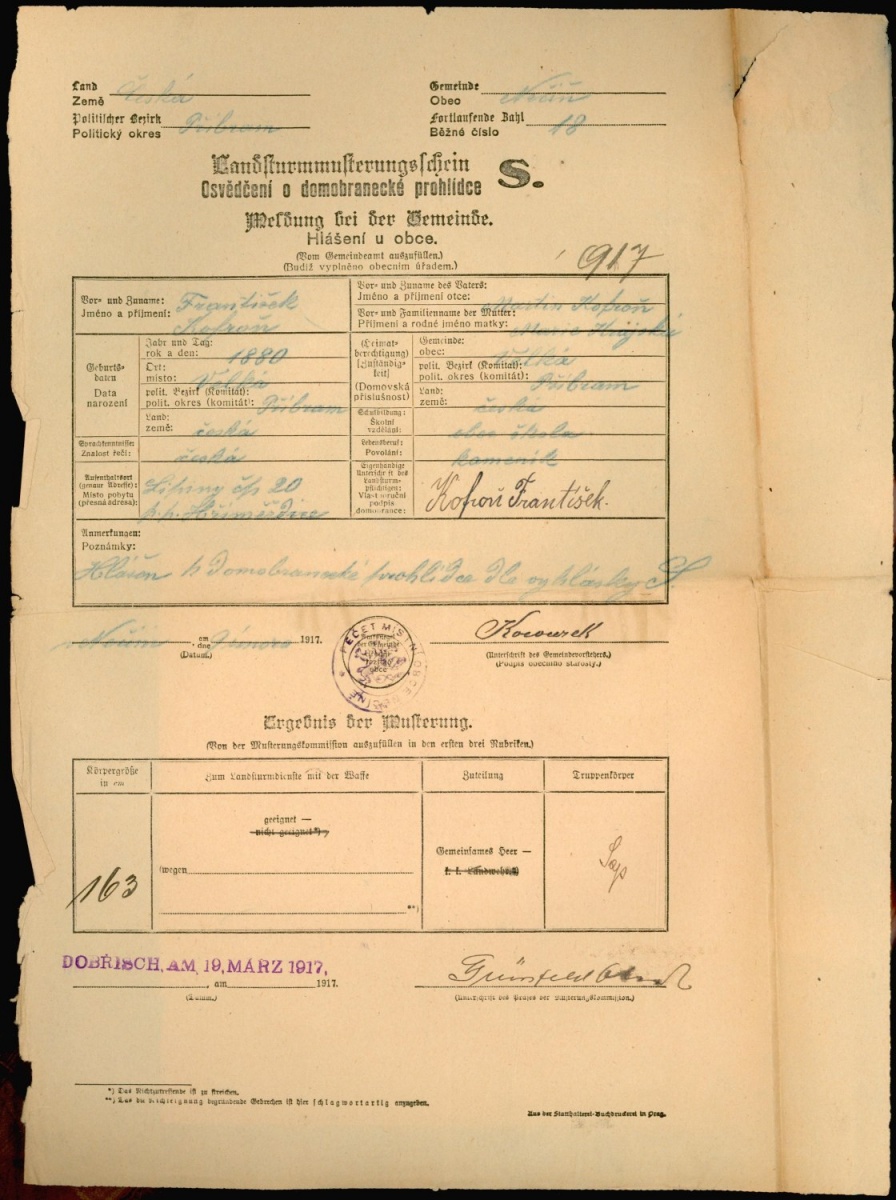 Land
Země Česká
Gemeinde
Obec Nečín
Politischer Bezirk
Politický okres Příbram
Fortlaufende Zahl
Běžné číslo 18
Landsturmmusterungsschein
Osvědčení o domobranecké prohlídce S.
Meldung bei der Gemeinde.
Hlášení u obce.
(Vom Gemeindeamt auszufüllen.)
(Budiž vyplněno obecním úřadem.)
917
Vor- und Zuname:
Jméno a příjmení:
František
Kofroň
Vor- und Zuname des Vaters:
Jméno a příjmení otce: Martin Kofroň
Vor- und Familienname der Mutter:
Příjmení a rodné jméno matky: Marie
Geburts-
daten
Data
narození
Jahr und Tag:
rok a den: 1880
Ort:
místo: Velká
polit. Bezirk (Komität):
polit. okres (komitát): Příbram
Land:
země: česká
(Heimat-
berechtigung)
(Zuständig-
keit)
(Domovská
příslušnost)
Gemeinde:
obec: Velká
polit. Bezirk (Komität):
polit. okres (komitát): Příbram
Land:
země: česká
Schulbildung:
Školní
vzdělání: obec. škola
Sprachkenntnisse:
Znalost řečí: česká
Lebensberuf:
Povolání: kameník
Aufenthaltsort
(genaue Adresse):
Místo pobytu
(přesná adresa):
čp. 20
p. p. Křimědice
Eigenhändige
Unterschrift des
Landsturm-
pflichtigen:
Vlastnoruční
podpis
domobrance:
Kofroň František.
Anmerkungen:
Poznámky:
Hlášen k domobranecké prohlídce dle vyhlášky S.
Nečín am
dne února 1917.
(Datum.)
PEČEŤ MÍSTNÍ OBCE
(Unterschrift des Gemeindevorstehers.)
(Podpis obecního starosty.)
Ergebnis der Musterung.
(Von der Musterungskommission auszufüllen in den ersten drei Rubriken.)
Körpergröße
in cm
Zum Landsturmdienste mit der Waffe
Zuteilung
Truppenkörper
163
geeignet —
nicht geeignet*)
(wegen
**)
Gemeinsames Heer —
k. k. Landwehr*)
Sap
DOBŘISCH, AM 19. MÄRZ 1917.
, am 1917.
(Datum.)
Grünfeld
(Unterschrift des Präses der Musterungskommission.)
*) Das Nichtzutreffende ist zu streichen.
**) Das die Nichteignung begründende Gebrechen ist hier schlagwortartig anzugeben.
Aus der Statthalterei-Buchdruckerei in Prag.